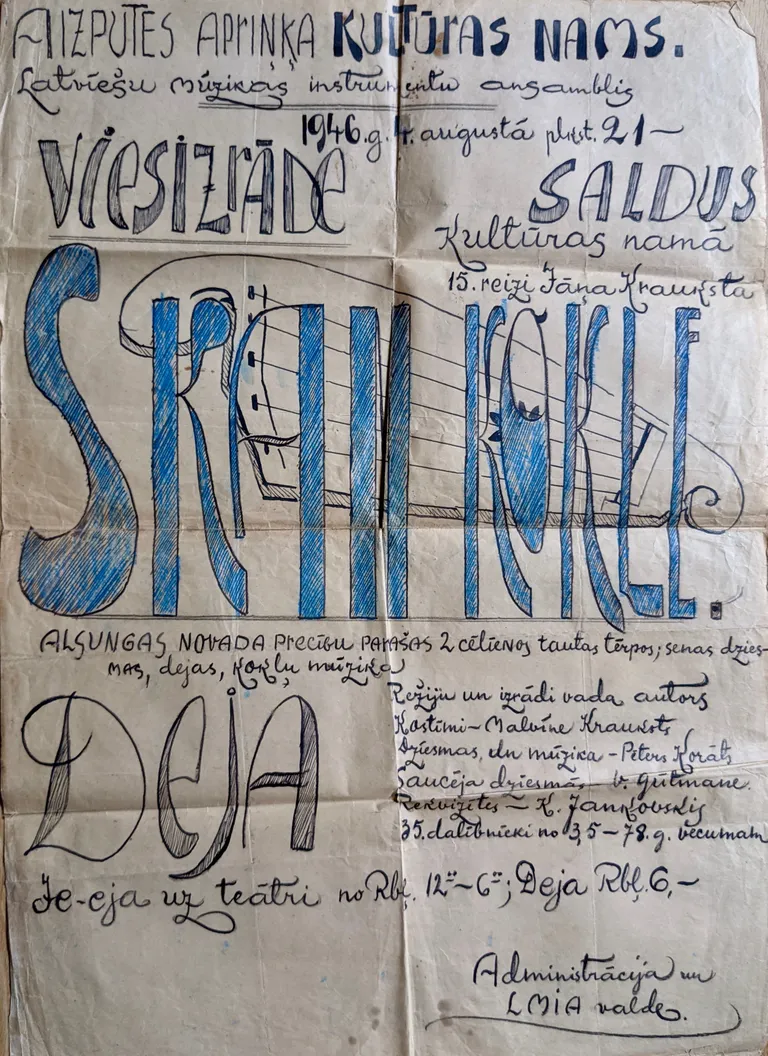 AIZPUTES APRIŅĶA KULTŪRAS NAMS.
Latviešu mūzikas instrumentu ansamblis
1946.g. 4. augustā plkst. 21—
VIESIZRĀDE SALDUS
Kultūras namā
15. reizi Jāņa Krauksta
SKAN KOKLE.
ALŠUNGAS NOVADA Precību PARAŠAS 2 cēlienos tautas tērpos; senas dzies-
mas, dejas, kokļu mūzika
DEJA
Režiju un izrādi vada autors
Kostīmi – Malvīne Krauksts
Dziesmas, un mūzika – Pēters Korāts
Saucēja dziesmās – v. gūtmane.
Rekvizītes – K. Jankovskis
35. dalībnieki no 3,5 – 78. g. vecumam
Ie-eja uz teātri no Rbļ. 12-– 6-; Deja Rbļ. 6,–
Administrācija un
LMIA valde.